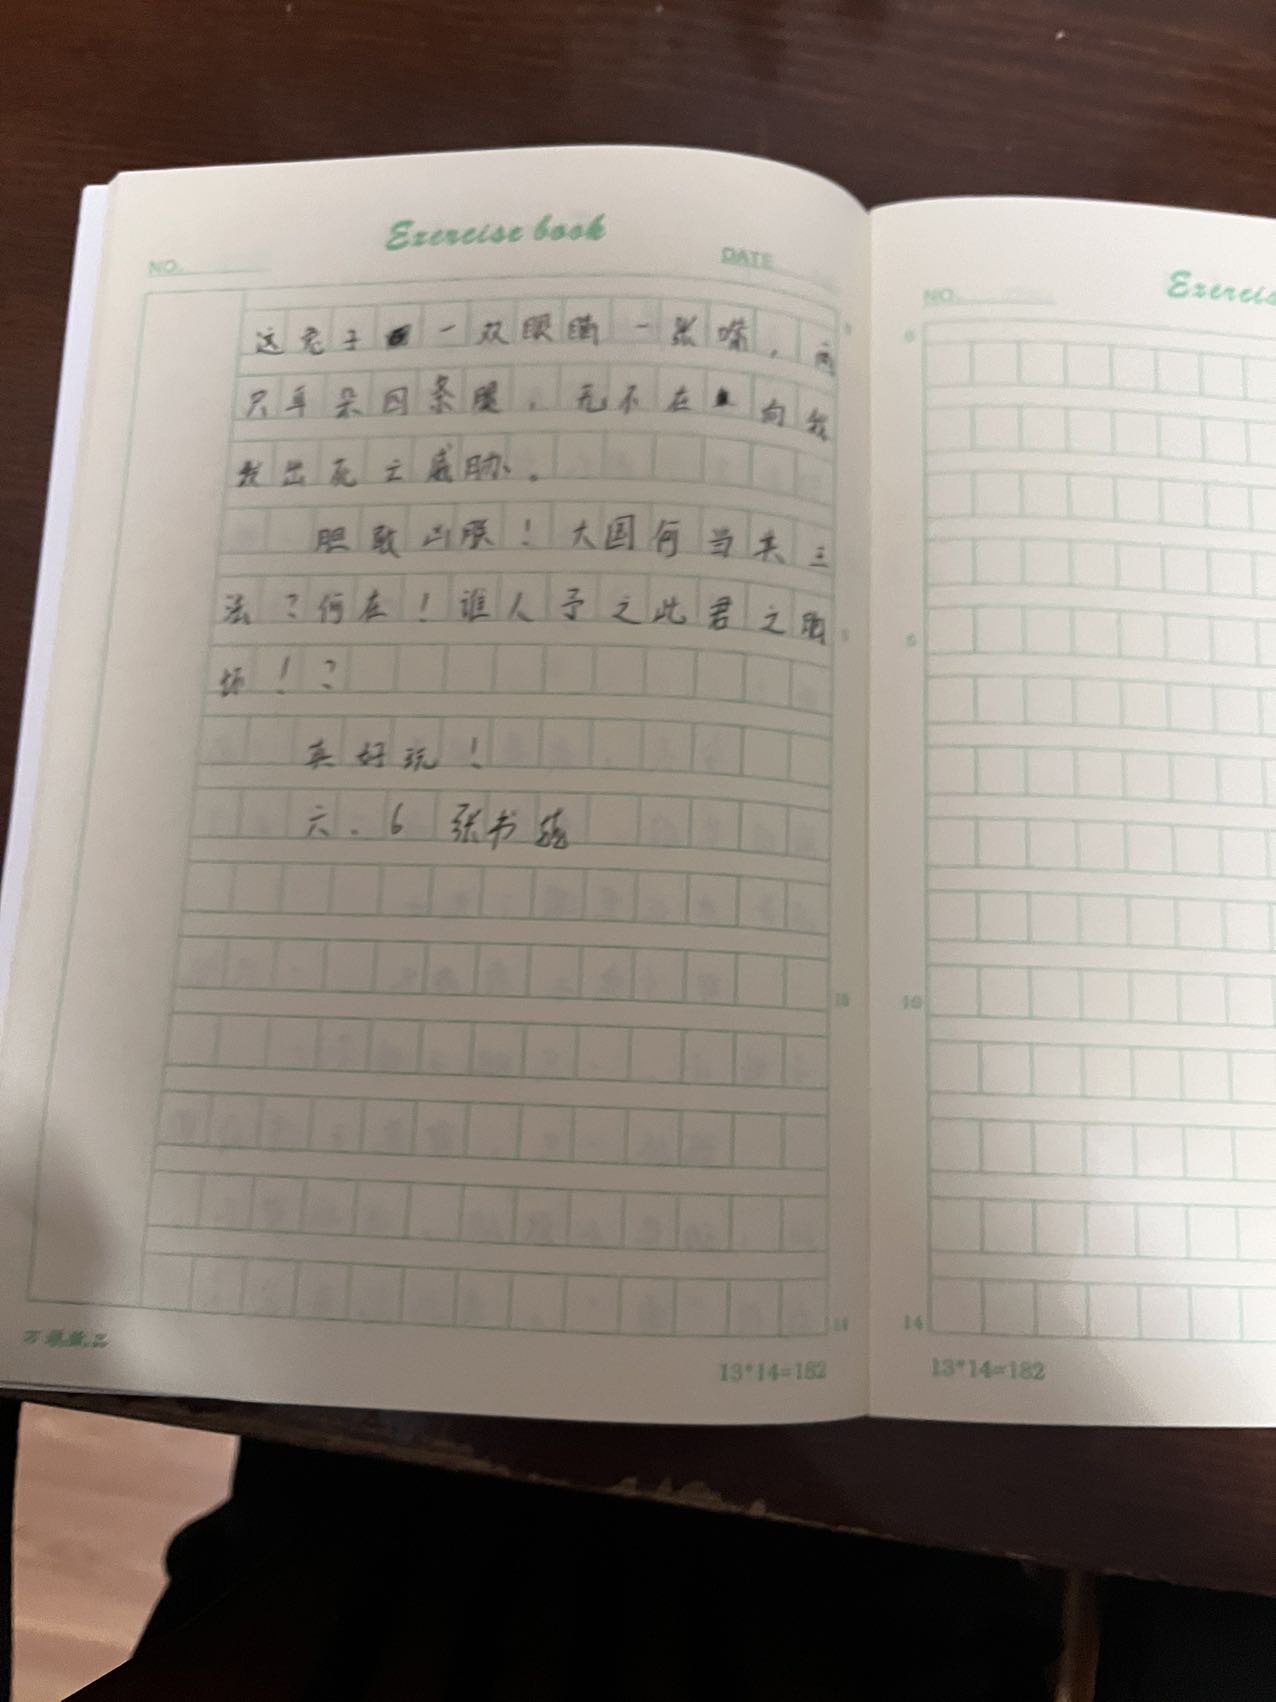 Exercise book
NO.
DATE
这兔子一双眼睛一张嘴，两
只耳朵四条腿，无不在向我
发出死亡威胁。
胆敢凶朕！大国何当其三
法？何在！谁人予之此君之胆
！？
真好玩！
六.6 张书
5
10
14
13*14=182
NO.
Exercis
0
5
10
14
13*14=182